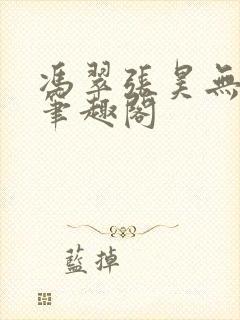 馮翠張昊無
筆趣閣
藍掉